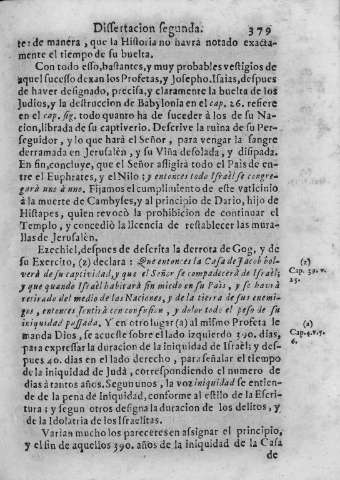 Dissertacion segunda. 379
te: de manera, que la Historia no havrà notado exacta-
mente el tiempo de su buelta.
Con todo esso, bastantes, y muy probables vestigios de
aquel sucesso dexan los Profetas, y Josepho. Isaias, despues
de haver designado, precisa, y claramente la buelta de los
Judios, y la destruccion de Babylonia en el cap. 26. refiere
en el cap. sig. todo quanto ha de suceder à los de su Na-
cion, librada de su captiverio. Describe la ruina de su Per-
seguidor, y lo que harà el Señor, para vengar la sangre
derramada en Jerusalèn, y su Viña desolada, y disipada.
En fin, concluye, que el Señor afligirà todo el Pais de en-
tre el Euphrates, y el Nilo; y entonces todo Israèl se congre-
garà uno à uno. Fijamos el cumplimiento de este vaticinio
à la muerte de Cambyses, y al principio de Dario, hijo de
Histapes, quien revocò la prohibicion de continuar el
Templo, y concediò la licencia de restablecer las mura-
llas de Jerusalèn.
Ezechiel, despues de descrita la derrota de Gog, y de
su Exercito, (z) declara: Que entonces la Casa de Jacob bol-
verà de su captividad, y que el Señor se compadecerà de Israèl;
y que quando Israèl habitarà sin miedo en su Pais, y se havrà
retirado del medio de las Naciones, y de la tierra de sus enemi-
gos, entonces sentirà con confusion, y dolor todo el peso de su
iniquidad passada. Y en otro lugar (a) al mismo Profeta le
manda Dios, se acueste sobre el lado izquierdo 390. dias,
para expressar la duracion de la iniquidad de Israèl; y des-
pues 40. dias en el lado derecho, para señalar el tiempo
de la iniquidad de Judà, correspondiendo el numero de
dias à tantos años. Segun unos, la voz iniquidad se entien-
de de la pena de Iniquidad, conforme al estilo de la Escri-
tura; y segun otros designa la duracion de los delitos, y
de la Idolatria de los Israelitas.
Varian mucho los pareceres en assignar el principio,
y el fin de aquellos 390. años de la iniquidad de la Casa
de
(z)
Cap. 39. v.
25.
(a)
Cap. 4. v. 5.
6.